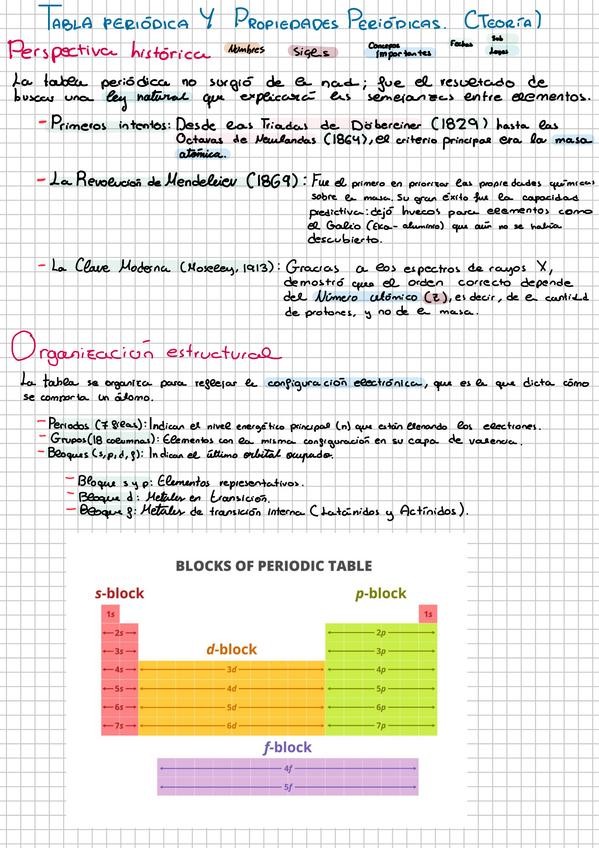 TABLA PERIÓDICA Y PROPIEDADES PERIÓDICAS. (TEORÍA)
Perspectiva histórica Nombres Siglas Conceptos importantes Fechas Sub
La tabla periódica no surgió de la nad; fue el resultado de
buscar una ley natural que explicará las semejanzas entre elementos.
- Primeros intentos: Desde las Triadas de Döbereiner (1829) hasta las
Octavas de Newlandas (1864), el criterio principal era la masa
atómica.
- La Revolución de Mendeleiev (1869): Fue el primero en priorizar las propiedades químicas
sobre la masa. Su gran éxito fue la capacidad
predictiva: dejó huecos para elementos como
el Galio (Eka-aluminio) que aún no se había
descubierto.
- La Clave Moderna (Moseley, 1913): Gracias a los espectros de rayos X,
demostró que el orden correcto depende
del Número atómico (Z), es decir, de la cantidad
de protones, y no de la masa.
Organización estructural
La tabla se organiza para reflejar la configuración electrónica, que es la que dicta cómo
se comporta un átomo.
- Periodos (7 filas): Indican el nivel energético principal (n) que están llenando los electrones.
- Grupos (18 columnas): Elementos con la misma configuración en su capa de valencia.
- Bloques (s, p, d, f): Indican el último orbital ocupado.
- Bloque s y p: Elementos representativos.
- Bloque d: Metales en transición.
- Bloque f: Metales de transición interna (Latánidos y Actínidos).
BLOCKS OF PERIODIC TABLE
s-block p-block
1s 1s
2s 2p
3s d-block 3p
4s 3d 4p
5s 4d 5p
6s 5d 6p
7s 6d 7p
f-block
4f
5f